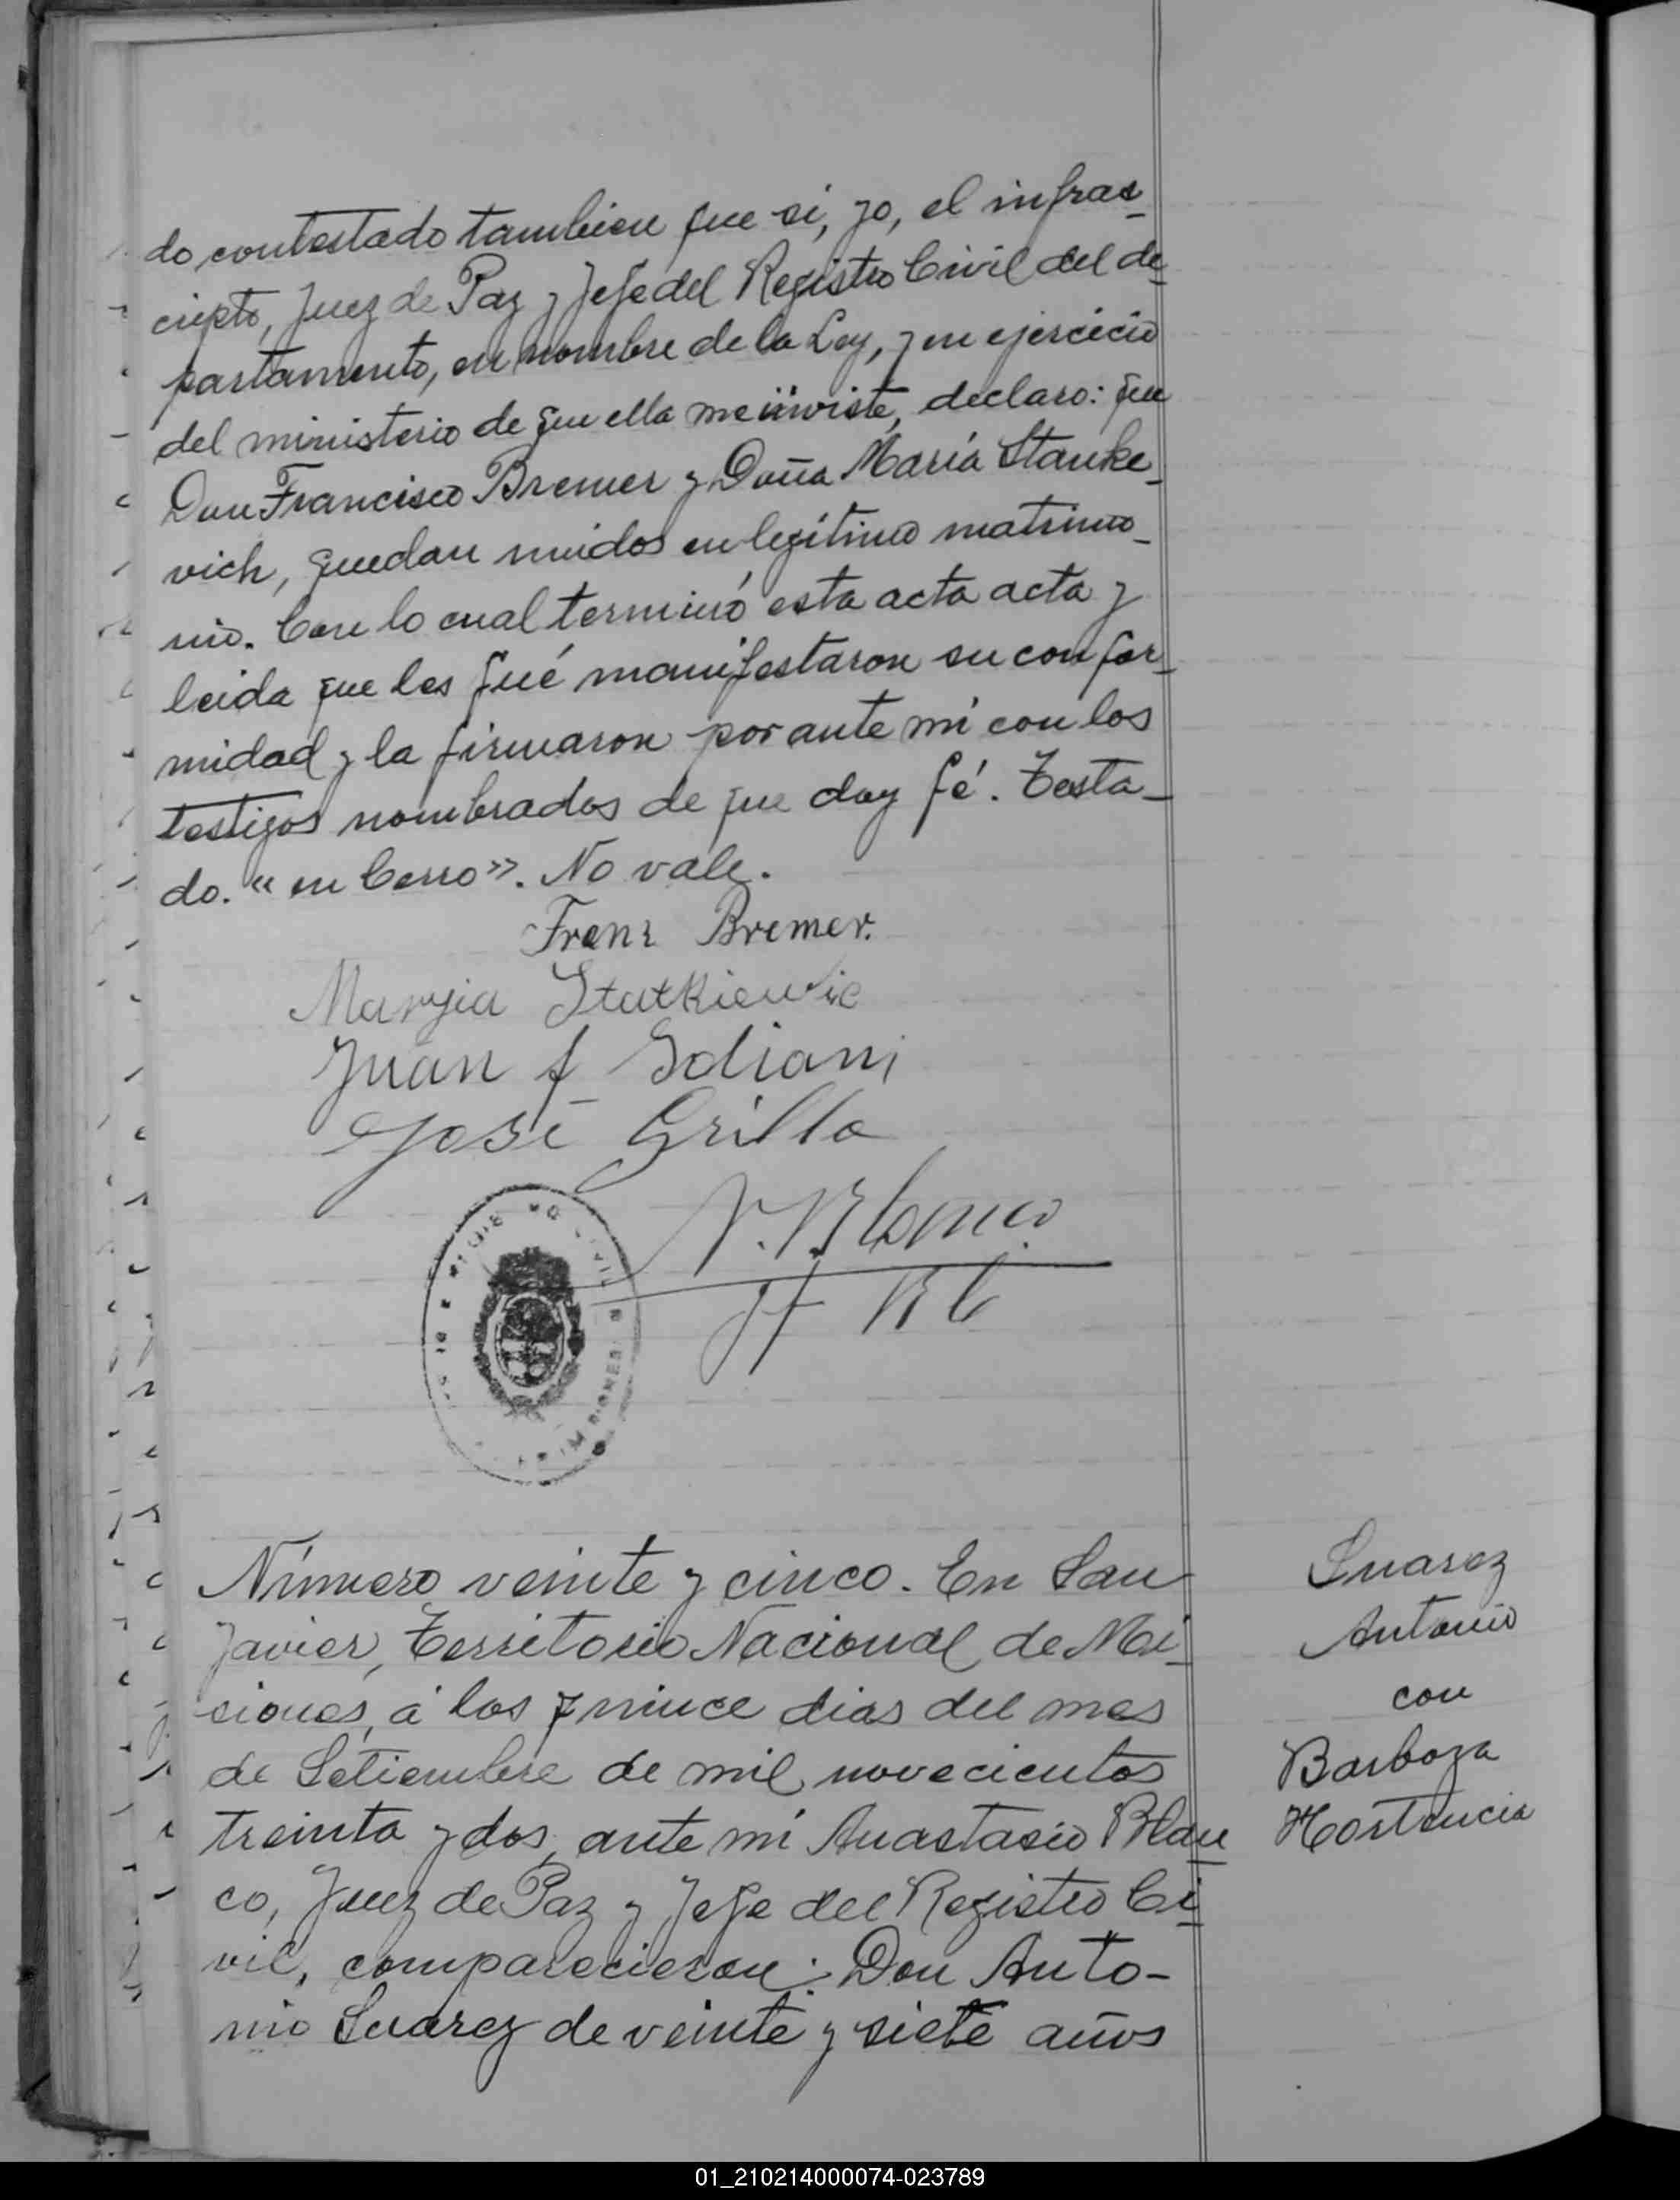 do contestado tambien que si, yo, el infras_
cripto, Juez de Paz y Jefe del Registro Civil del de_
partamento, en nombre de la Ley, y en ejercicio
del ministerio de que ella me inviste, declaro: que
Don Francisco Bremer y Doña María Stanke_
vich, quedan unidos en legítimo matrimo_
nio. Con lo cual terminó esta acta acta y
leida que les fué manifestaron su confor_
midad y la firmaron por ante mi con los
testigos nombrados de que doy fé. Testa_
do. "en Cerro". No vale.
Franz Bremer.
Maryia Statkiewic
Juan f Soliani
José Grillo
A. Blanco
Número veinte y cinco. En San
Javier, Territorio Nacional de Mi_
siones, á los quince dias del mes
de Setiembre de mil novecientos
treinta y dos, ante mi Anastasio Blan_
co, Juez de Paz y Jefe del Registro Ci_
vil, comparecieron: Don Anto-
nio Suarez de veinte y siete años
Suarez
Antonio
con
Barboza
Hortencia
01_210214000074-023789